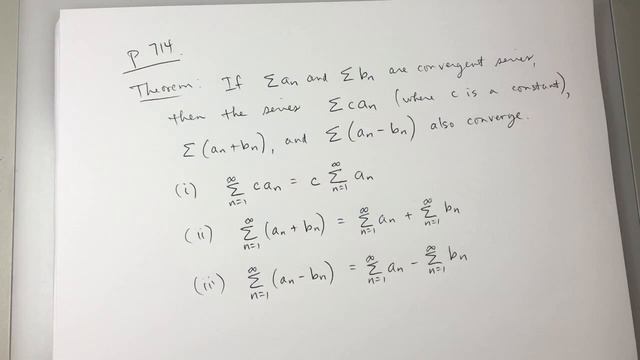 p 714.
Theorem: If Σan and Σbn are convergent series,
then the series Σcan (where c is a constant),
Σ(an+bn), and Σ(an-bn) also converge.
(i) ∞Σn=1 can = c ∞Σn=1 an
(ii) ∞Σn=1 (an + bn) = ∞Σn=1 an + ∞Σn=1 bn
(iii) ∞Σn=1 (an - bn) = ∞Σn=1 an - ∞Σn=1 bn